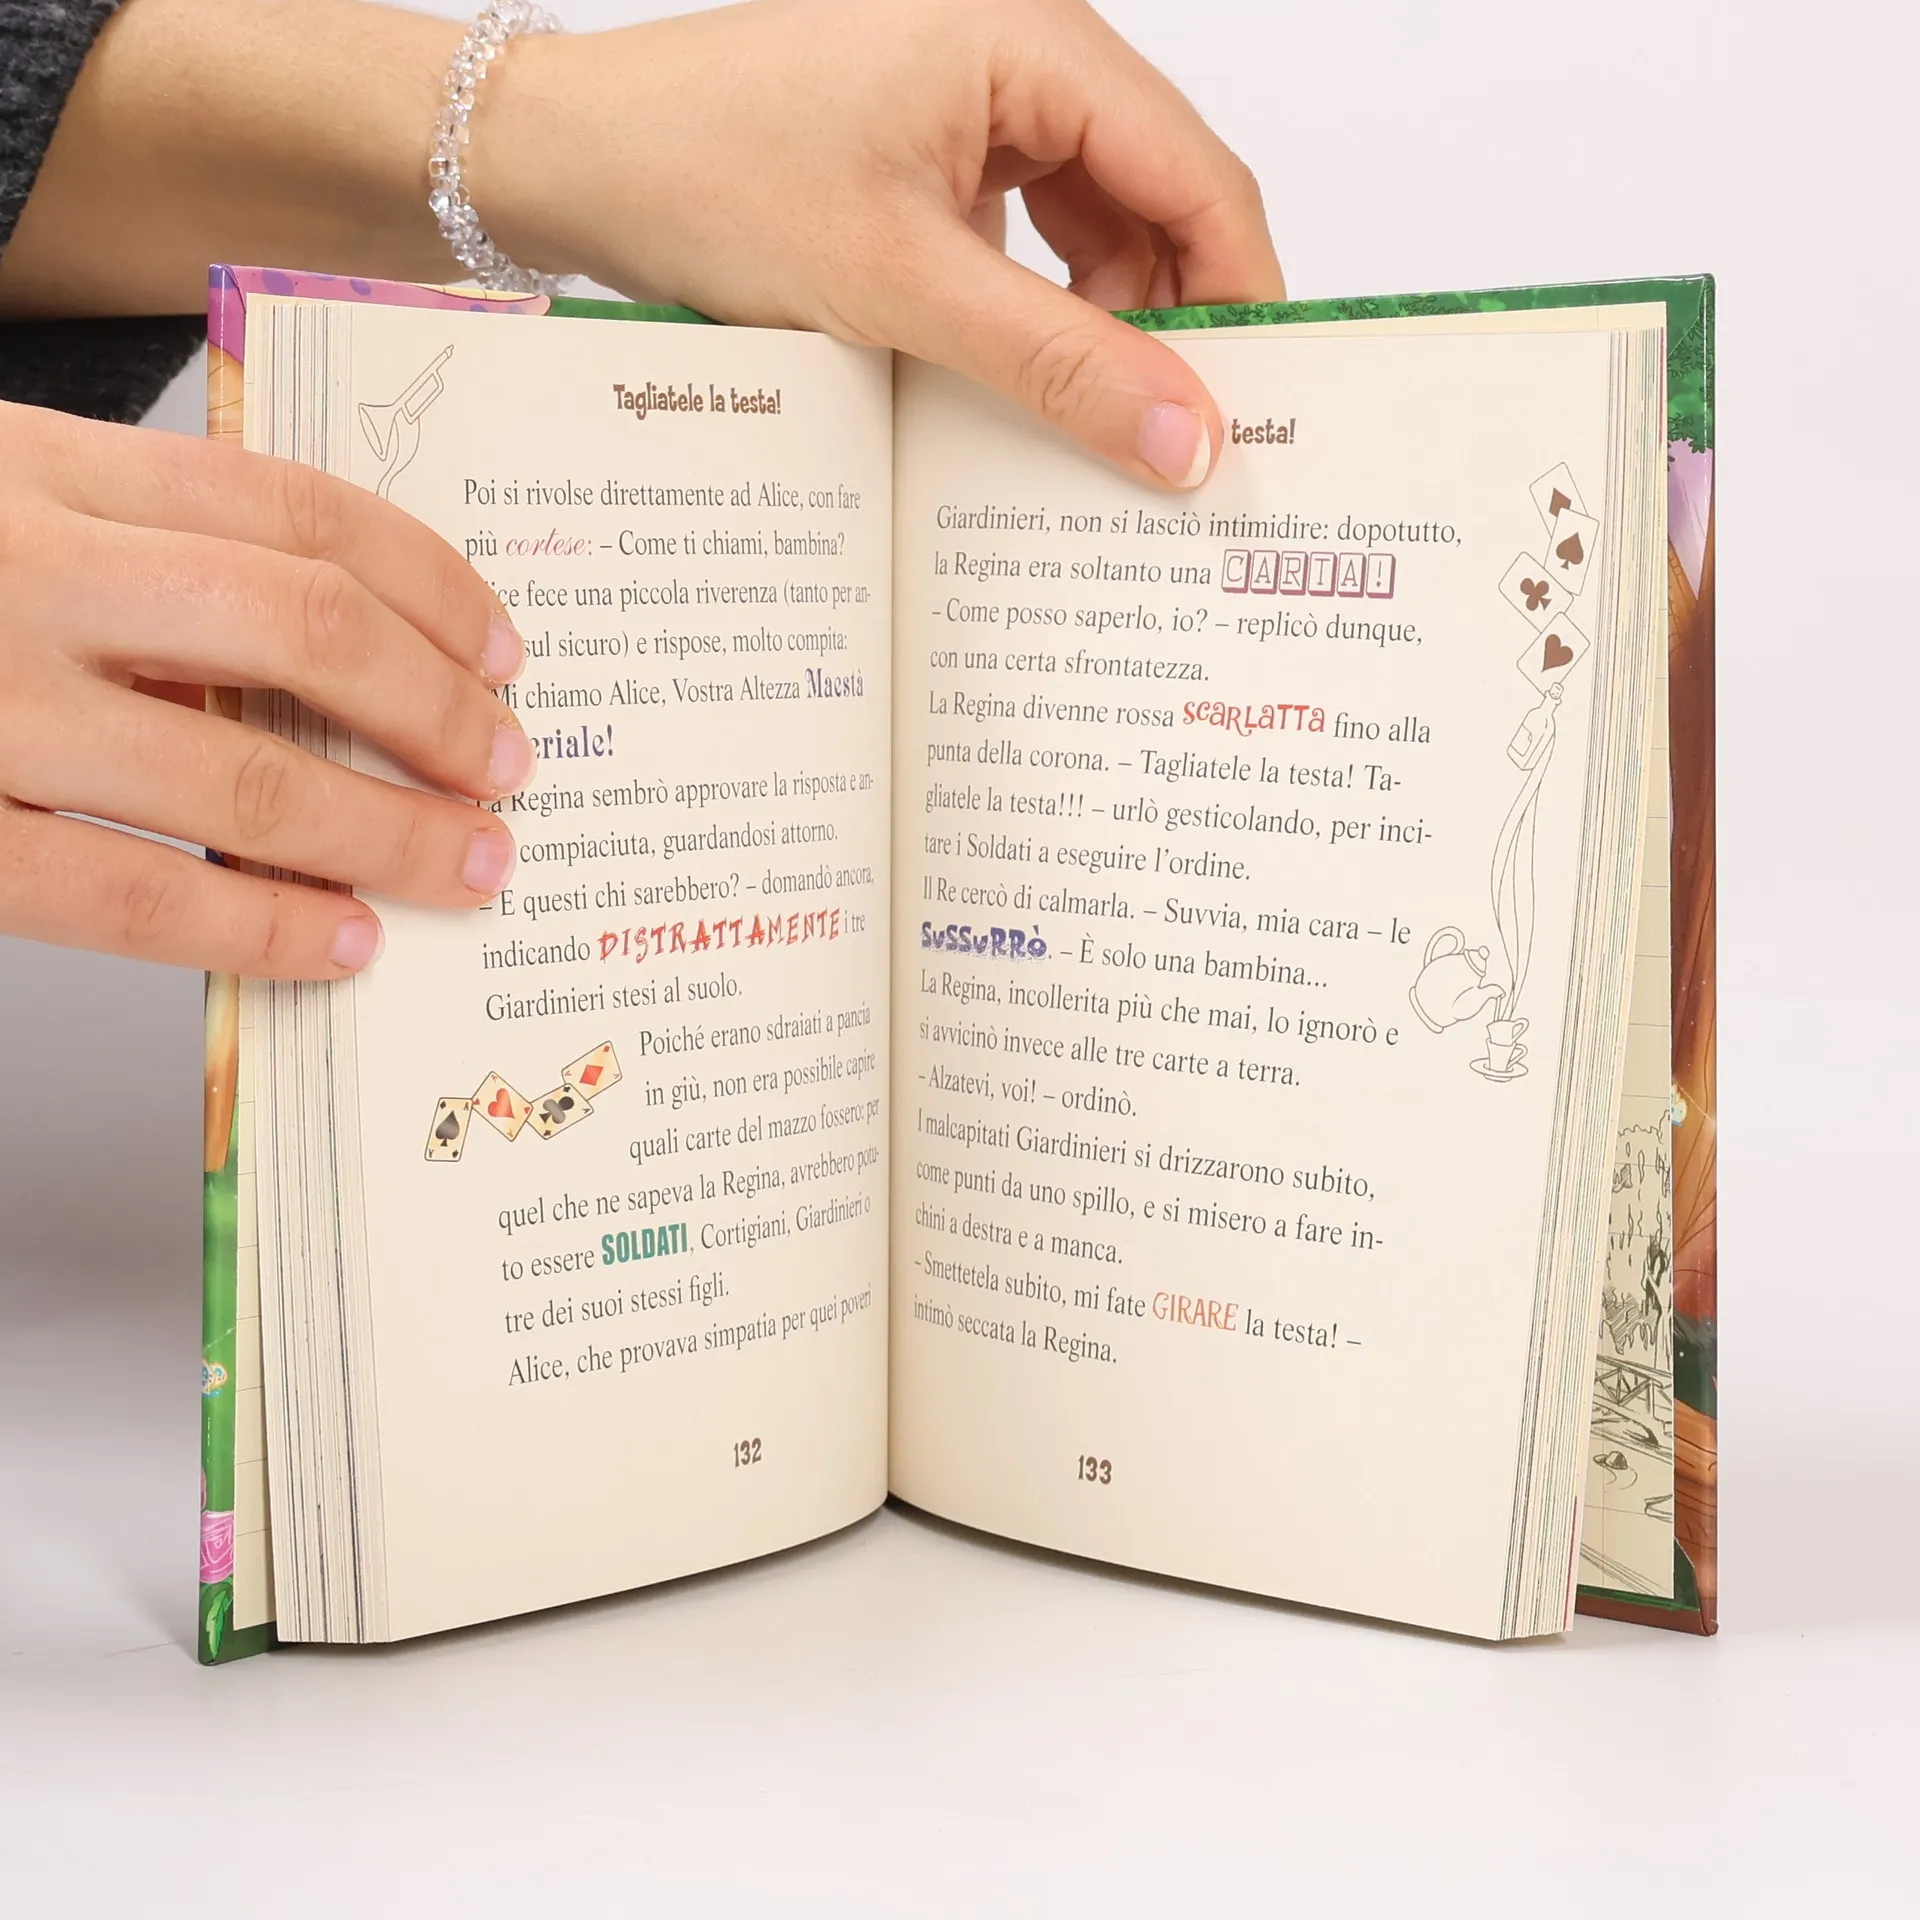 Tagliatele la testa!
Poi si rivolse direttamente ad Alice, con fare
più cortese: – Come ti chiami, bambina?
fece una piccola riverenza (tanto per an-
sul sicuro) e rispose, molto compita:
Mi chiamo Alice, Vostra Altezza Maestà
eriale!
La Regina sembrò approvare la risposta e an-
compiaciuta, guardandosi attorno.
– E questi chi sarebbero? – domandò ancora,
indicando DISTRATTAMENTE i tre
Giardinieri stesi al suolo.
Poiché erano sdraiati a pancia
in giù, non era possibile capire
quali carte del mazzo fossero: per
quel che ne sapeva la Regina, avrebbero potu-
to essere SOLDATI, Cortigiani, Giardinieri o
tre dei suoi stessi figli.
Alice, che provava simpatia per quei poveri
132
testa!
Giardinieri, non si lasciò intimidire: dopotutto,
la Regina era soltanto una CARTA!
– Come posso saperlo, io? – replicò dunque,
con una certa sfrontatezza.
La Regina divenne rossa SCARLATTA fino alla
punta della corona. – Tagliatele la testa! Ta-
gliatele la testa!!! – urlò gesticolando, per inci-
tare i Soldati a eseguire l'ordine.
Il Re cercò di calmarla. – Suvvia, mia cara – le
SUSSURRÒ. – È solo una bambina...
La Regina, incollerita più che mai, lo ignorò e
si avvicinò invece alle tre carte a terra.
– Alzatevi, voi! – ordinò.
I malcapitati Giardinieri si drizzarono subito,
come punti da uno spillo, e si misero a fare in-
chini a destra e a manca.
– Smettetela subito, mi fate GIRARE la testa! –
intimò seccata la Regina.
133